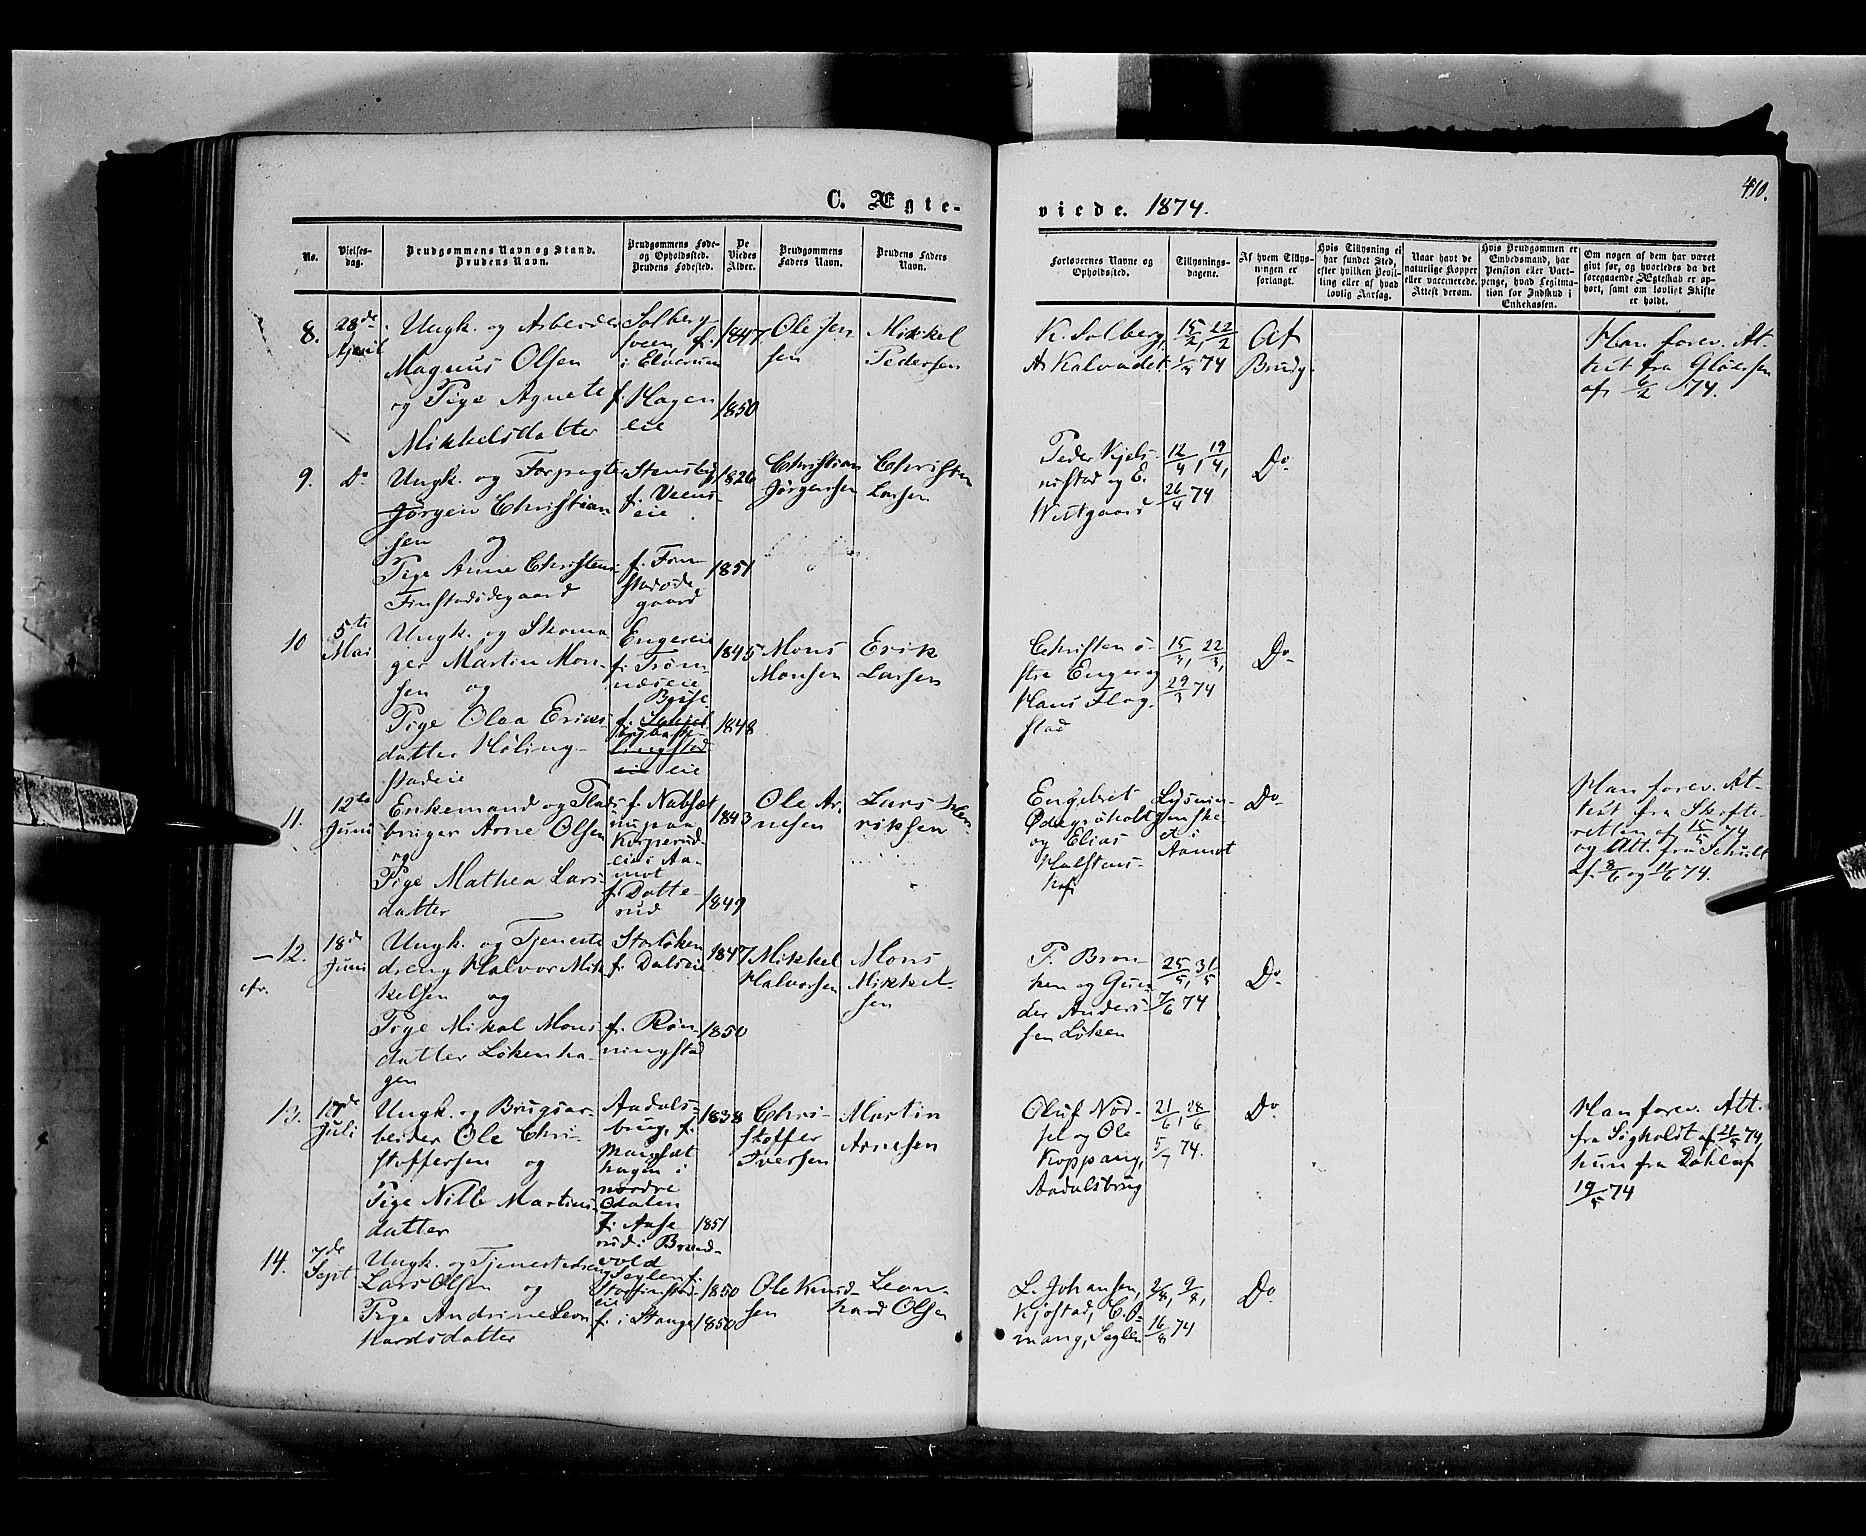 410.
C. Ægte-
viede. 1874.
No.
Vielses-
dag.
Brudgommens Navn og Stand.
Brudens Navn.
Brudgommens Føde-
og Opholdssted.
Brudens Fødested.
De
Viedes
Alder.
Brudgommens
Faders Navn.
Brudens Faders
Navn.
Forlovernes Navne og
Opholdssted.
Tillysnings-
dagene.
Af hvem Tillys-
ningen er
forlangt.
Hvis Tillysning ei
har fundet Sted,
efter hvilken Bevil-
ling eller af hvad
lovlig Aarsag.
Naar havt de
naturlige Kopper
eller vaccinerede.
Attest derom.
Hvis Brudgommen er
Embedsmand, har
Pension eller Vart-
penge, hvad Legitima-
tion for Indskud i
Enkekassen.
Om nogen af dem har været
gift før, og hvorledes da det
foregaaende Ægteskab er op-
hørt, samt om lovligt Skifte
er holdt.
8.
28de
April
Ungk. og Arbeider
Magnus Olsen
og Pige Agnete
Mikkelsdatter
Solberg
sveen, f.
i Elverum
f. Hagen
eie
1847
1850
Ole Jen
sen
Mikkel
Pedersen
K. Solberg,
A Kalvadet
15/2, 22/2
1/3 74
Af
Brudg.
Han forev. At-
test fra
af 6/2 74.
9.
Do
Ungk. og Forpagter
Jørgen Christian
sen og
Pige Anne Christens
Finstadødegaard
Stensby
f. Veens-
eie
f. Finn
stadøde
gaard
1826
1851
Christian
Jørgensen
Christen
Larsen
Peder Kjels-
mstad og E.
Westgaard
12/4, 19/4,
26/4 74
Do
10
5te
Mai
Ungk. og Skoma
ger Martin Mon-
sen og
Pige Olea Erics
datter Høling-
stadeie
Engereie
f. Trøn-
næseie
1845
1848
Mons
Monsen
Erik
Larsen
Christen ø-
stre Enger og
Hans Flag-
stad
15/3, 22/3,
29/3 74
Do
11.
12te
Juni
Enkemand og Plads
bruger Arne Olsen
og
Pige Mathea Lars
datter
f. Nabset
nu paa
Korperud-
eie i Aa-
mot
f. Dotte
rud
1843
1849
Ole Ar
nesen
Lars Hen-
riksen
Engebret
Ødegrdholt
og Elias
Halstens-
hof
Lysnin-
gen ske
et i
Aamot
Do
Han forev. At-
test fra Skifte-
retten af 15/5 74
og Att. fra Schult
af 8/6 og 11/6 74.
12.
cfr.
18de
Juni
Ungk. og Tjeneste
dreng Halvor Mik
kelsen og
Pige Mikal Mons
datter Løkenha-
gen
Storløken
f. Dalseie
f. Røn-
ningstad
1847
1850
Mikkel
Halvorsen
Mons
Mikkel-
sen
P. Bron
ken og Gun
der Anders
sen Løken
25/5, 31/5
7/6 74
Do
13.
17de
Juli
Ungk. og Brugsar-
beider Ole Chri-
stoffersen og
Pige Nille Martins
datter
Aadals-
brug, f.
Mangset
hagen i
nordre
Odalen
f. Aase
rud i Brand-
vold
1838
1851
Chri-
stoffer
Iversen
Martin
Arnesen
Oluf Nod-
sel og Ole
Koppang,
Aadalsbrug
21/6, 28/6
5/7 74.
Do
Han forev. Att.
fra Sigholdt af 21/5 74,
hun fra Dahl af
19/5 74
14.
7de
Sept
Ungk. og Tjenestedreng
Lars Olsen og
Pige Andrine Leon
hardsdatter
Seglen f.
Storfinstad-
eie
f. i Stange
1850
1850
Ole Knud-
sen
Leon-
hard Olsen
L. Johansen,
Kjøstad, C. O-
mang, Seglen
2/8, 9/8,
16/8 74
Do